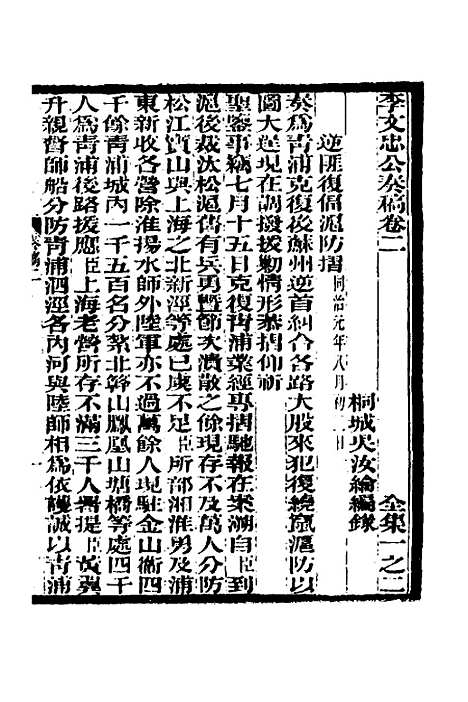 李文忠公奏稿卷二　全集一之二
桐城吳汝綸編錄
逆匪復偪滬防摺同治元年八月初　日
奏為青浦克復後蘇州逆首糾合各路大股來犯復繞竄滬防以
圖大逞現在調援勦情形恭摺仰祈
聖鑒事竊七月十五日克復青浦業經專摺馳報在案溯自臣到
滬後裁汰松滬舊有兵勇暨節次潰散之餘現存不及萬人分防
松江寶山與上海之北新涇等處已虞不足臣所部湘淮勇及浦
東新收各營除淮揚水師外陸軍亦不過萬餘人現駐金山衛四
千餘青浦城內一千五百名分紮北簳山鳳凰山塘橋等處四千
人為青浦後路援應臣上海老營所存不滿三千人署提臣黃翼
升親督師船分防青浦泗涇各內河與陸師相為依護誠以青浦
奏稿二　一